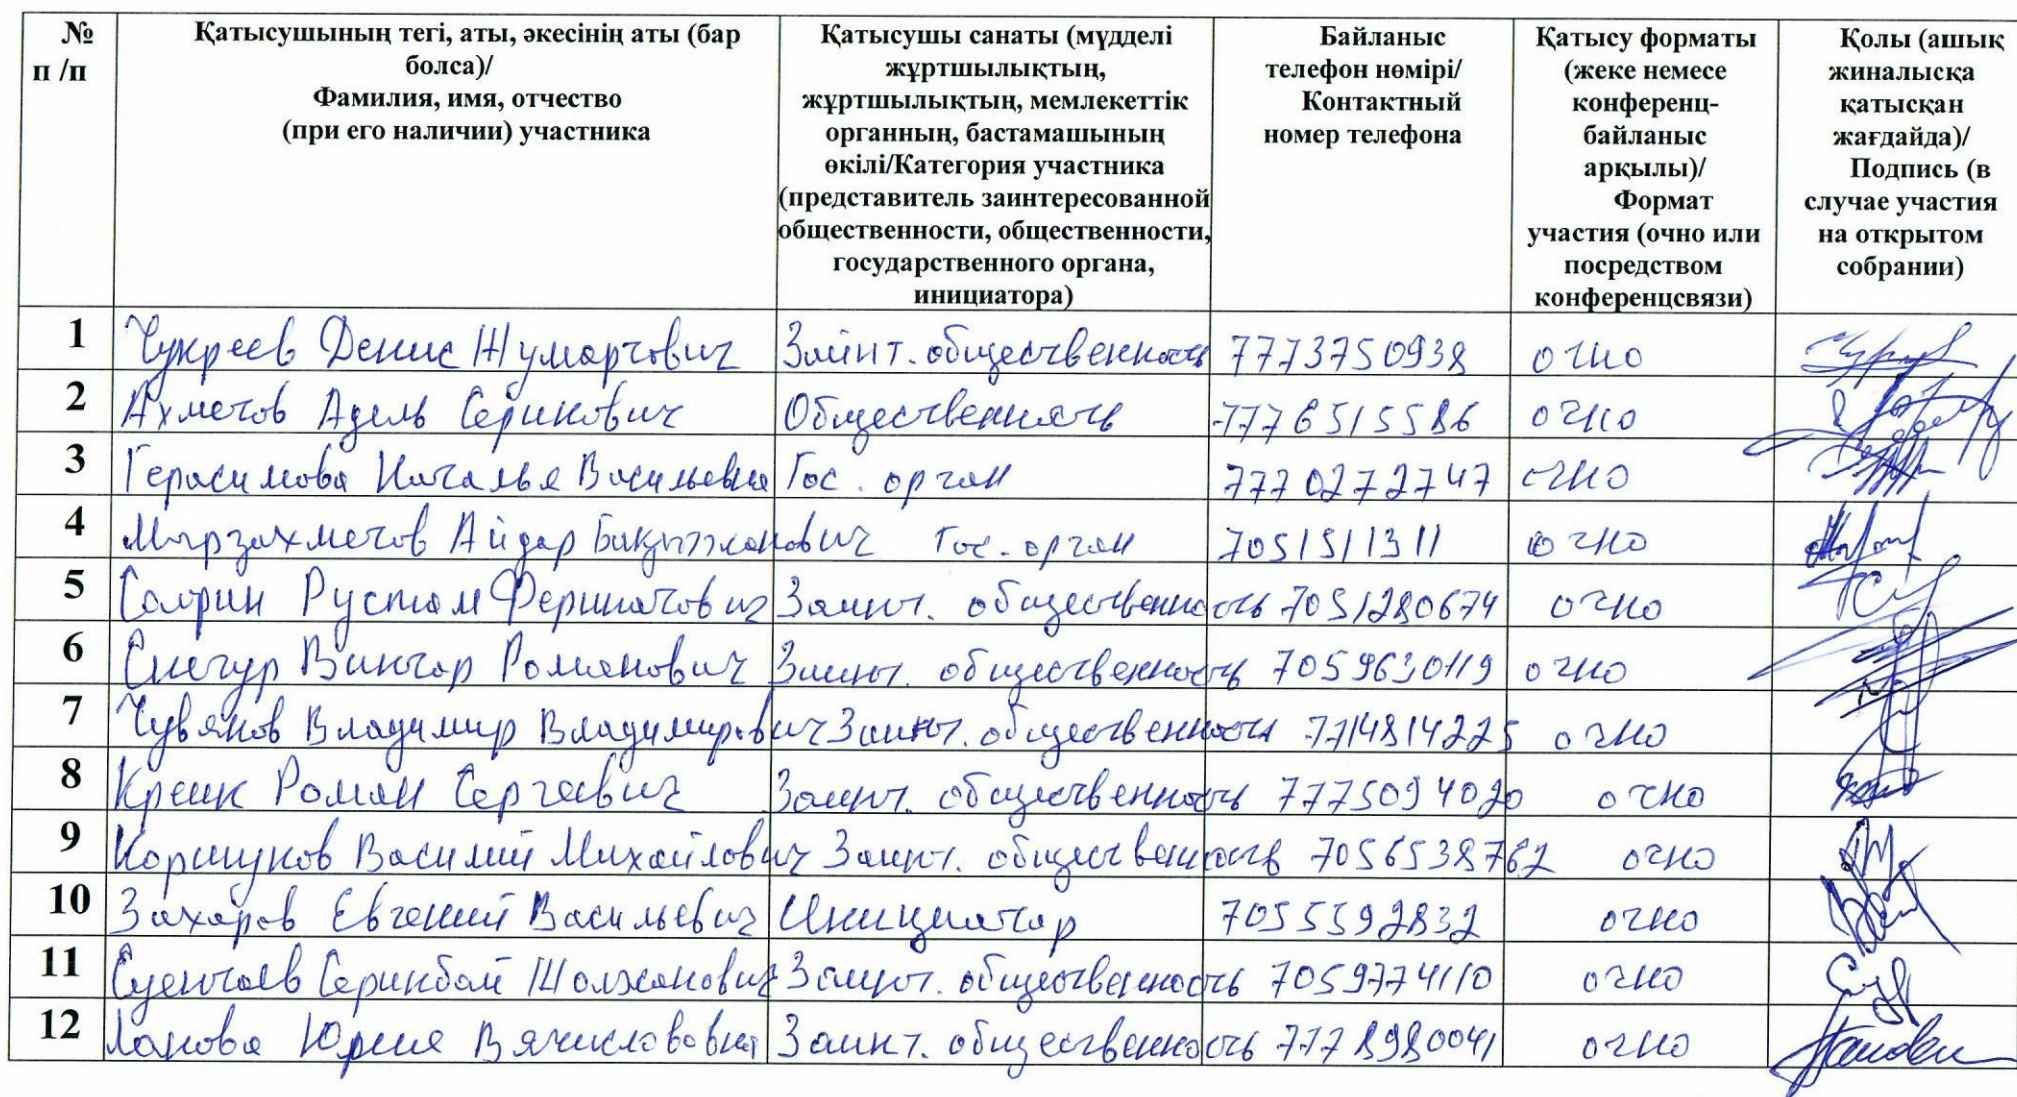 № п /п
Қатысушының тегі, аты, әкесінің аты (бар
болса)/
Фамилия, имя, отчество
(при его наличии) участника
Қатысушы санаты (мүдделі
жұртшылықтың,
жұртшылықтың, мемлекеттік
органның, бастамашының
өкілі/Категория участника
(представитель заинтересованной
общественности, общественности,
государственного органа,
инициатора)
Байланыс
телефон нөмірі/
Контактный
номер телефона
Қатысу форматы
(жеке немесе
конференц-
байланыс
арқылы)/
Формат
участия (очно или
посредством
конференцсвязи)
Қолы (ашық
жиналысқа
қатысқан
жағдайда)/
Подпись (в
случае участия
на открытом
собрании)
1 Чукреев Денис Жумартович Заинт. общественность 7773750938 очно
2 Ахметов Адель Серикович Общественность 7776515586 очно
3 Герасимова Наталья Васильевна Гос. орган 7770272747 очно
4 Мырзахметов Айдар Гос. орган 7051511311 очно
5 Рустам Заинт. общественность 7051280674 очно
6 Снегур Виктор Романович Заинт. общественность 7059630119 очно
7 Чувяков Владимир Владимирович Заинт. общественность 7714814225 очно
8 Креик Роман Сергеевич Заинт. общественность 7775094020 очно
9 Коршунов Василий Михайлович Заинт. общественность 7056538762 очно
10 Захаров Евгений Васильевич Инициатор 7055592832 очно
11 Серикбай Заинт. общественность 7059774110 очно
12 Заинт. общественность 7778980041 очно